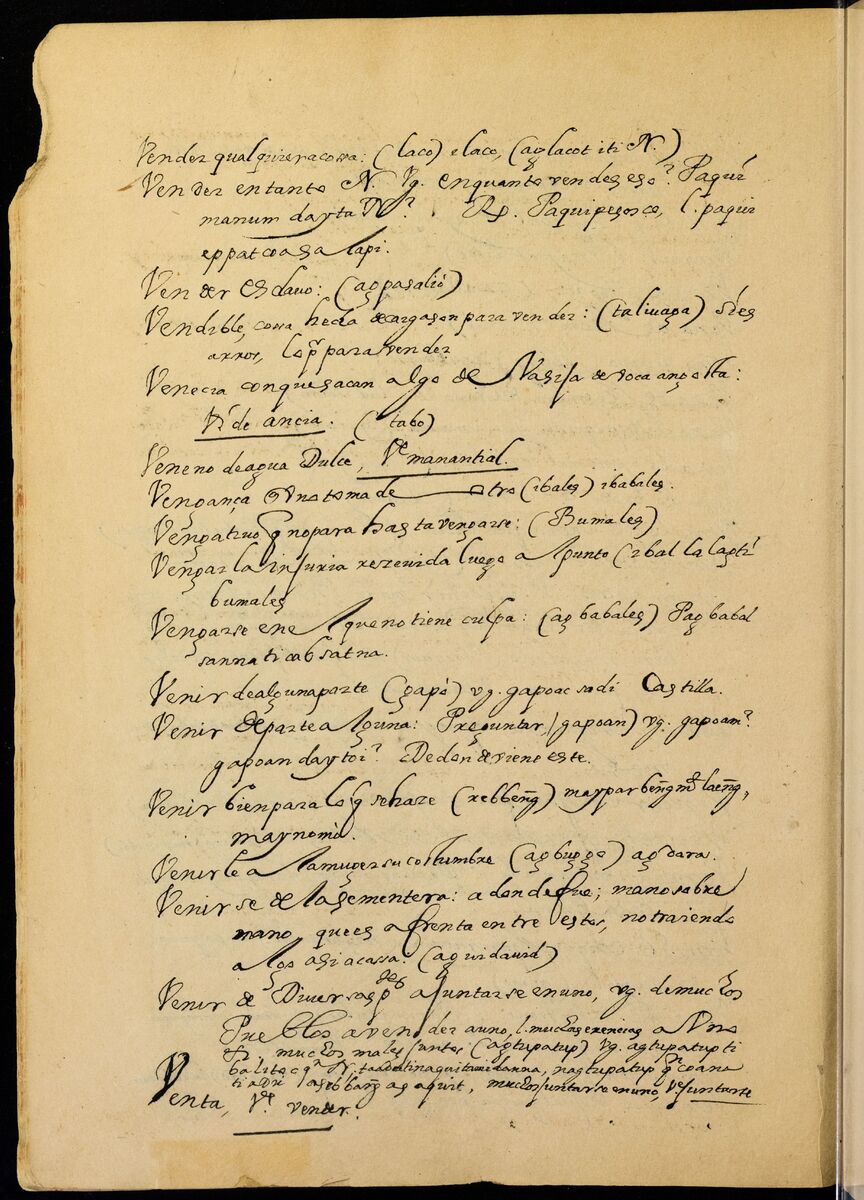 Vender qualquiera cossa: (laco) ilaco, (aglacot iti N.)
Vender en tanto N. Vg. enquanto vendes eso? Paquí
manum dayta N? Rp. Paquipesosco, l. paqui
eppatcoa salapi.
Vender Esclavo: (agpasalió)
Vendible, cossa hecha de cargason para vender: (talivaga) si es
arros, lo q̃ para vender
Venecia con que sacan algo de Vasija de voca angosta:
Vi de ancia. (tabo)
Veneno de agua Dulce, Ve manantial.
Vengança q̃ Vno toma de otro (ibales) ibabales.
Vengativo q̃ no para hasta vengarse: (Bumales)
Vengar la injuria rezevida luego al punto (ibal la lagti
bumales
Vengarse en el que no tiene culpa: (agbabales) Pagbabal
sanna ti cabsatna.
Venir de alguna parte (gapó) vg. gapoac sadi Castilla.
Venir de parte alguna: Preguntar, (gapoan) vg. gapoam?
gapoan daytoi? De donde viene este.
Venir bien para lo q̃ se haze (rebbeng̃) maypar beng̃ laeng̃,
maynomó.
Venirle a la muger su costumbre (ag dara.
Venirse de la sementera: a donde fue; mano sobre
mano, que es afrenta entre estos, no traiendo
algo asi a cassa: (aguidavid)
Venir de Diversas ptes a juntarse en uno, vg. de muchos
Pueblos a vender a uno, l. muchas erencias a Vno
muchos males juntos (agtupatup) vg. agtupatup ti
nagtupatup
ag aquit, muchos juntarse en uno, Ve juntarse
Venta, Ve vender.